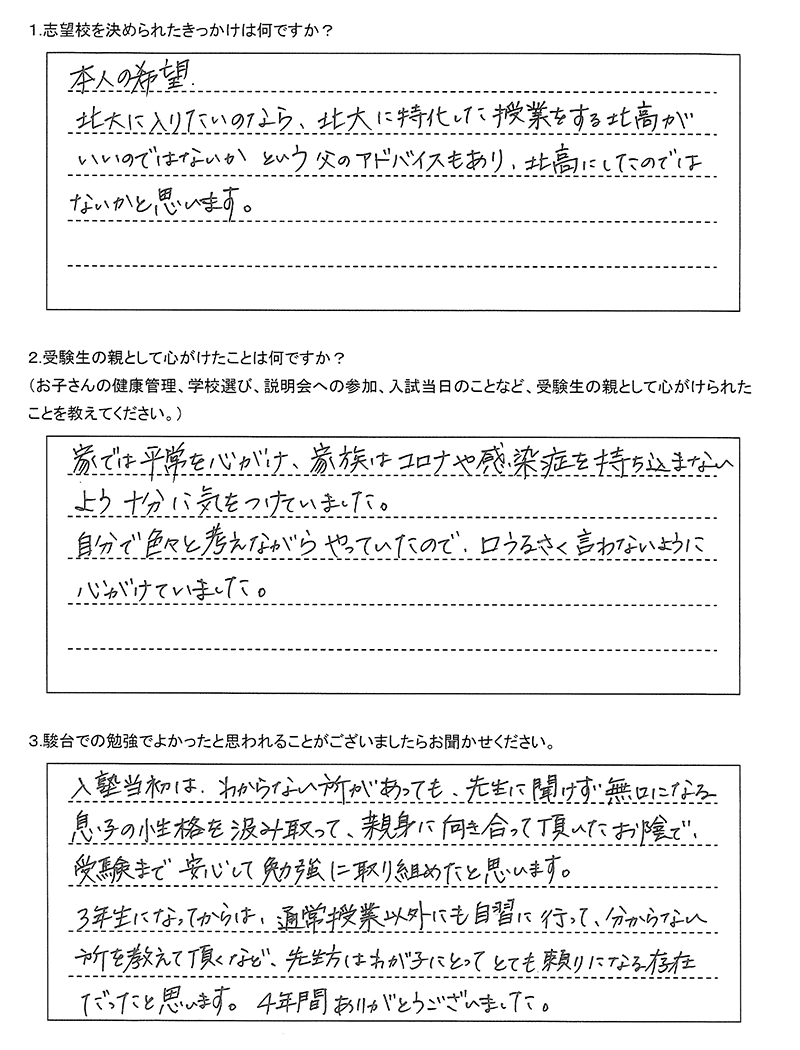 1.志望校を決められたきっかけは何ですか？
本人の希望.
北大に入りたいのなら、北大に特化した授業をする北高が
いいのではないか という父のアドバイスもあり、北高にしたのでは
ないかと思います。
2.受験生の親として心がけたことは何ですか？
（お子さんの健康管理、学校選び、説明会への参加、入試当日のことなど、受験生の親として心がけられた
ことを教えてください。）
家では平常を心がけ、家族はコロナや感染症を持ち込まない
よう十分に気をつけていました。
自分で色々と考えながらやっていたので、口うるさく言わないように
心がけていました。
3.駿台での勉強でよかったと思われることがございましたらお聞かせください。
入塾当初は、わからない所があっても、先生に聞けず無口になる
息子の性格を汲み取って、親身に向き合って頂いたお陰で、
受験まで安心して勉強に取り組めたと思います。
3年生になってからは、通常授業以外にも自習に行って、分からない
所を教えて頂くなど、先生方はわが子にとってとても頼りになる存在
だったと思います。4年間ありがとうございました。